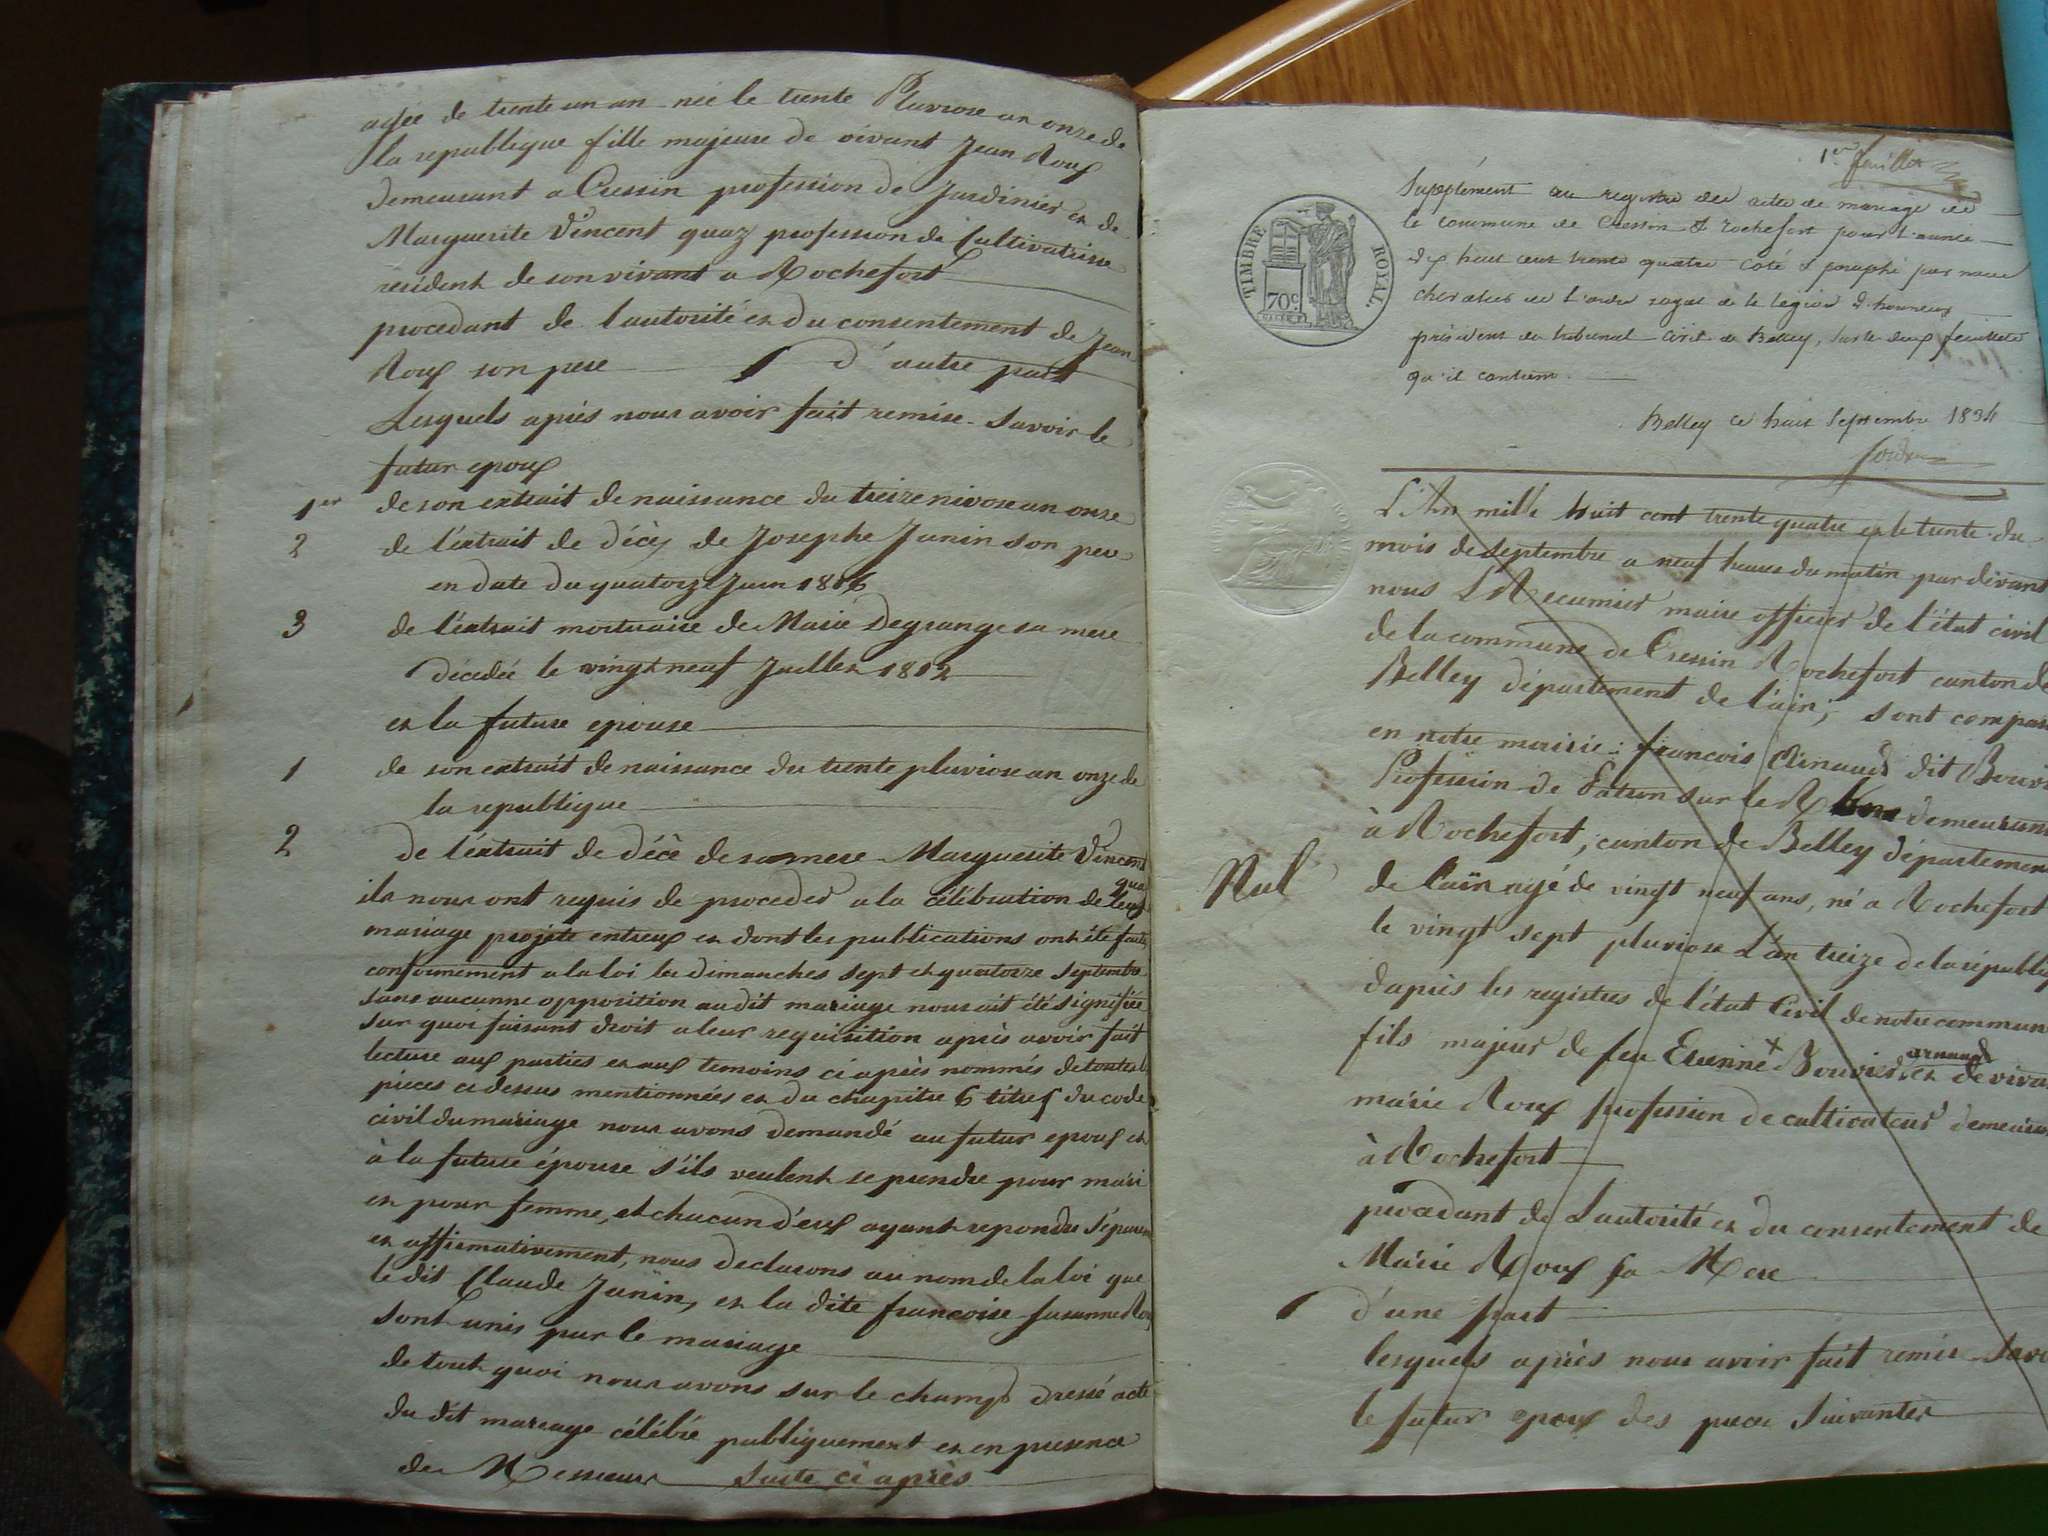 agée de trente un an née le trente Pluviose an onze de
la republique fille majeure de vivant Jean Roux
demeurant a Cressin profession de Jardinier et de
Marguerite Vincent quaz profession de Cultivatrice
resident de son vivant a Rochefort
procedant de l'autorité et du consentement de Jean
Roux son pere d'autre part
Lesquels après nous avoir fait remise Savoir le
futur epoux
1er de son extrait de naissance du treize nivose an onze
2 de l'extrait de décès de Josephe Janin son pere
en date du quatorze Juin 1806
3 de l'extrait mortuaire de Marie Degrange sa mere
décedée le vingt neuf Juillet 1812
et la future epouse
1 de son extrait de naissance du trente pluviose an onze de
la republique
2 de l'extrait de décè de sa mere Marguerite Vincent
quaz
ils nous ont requis de proceder a la célébration de leur
mariage projeté entreux et dont les publications ont été faites
conformement a la loi les dimanches sept et quatorze septembre
sans aucunne opposition audit mariage nous ait été signifiée
sur quoi faisant droit a leur requisition après avoir fait
lecture aux parties et aux temoins ci après nommés de toutes les
pieces ci dessus mentionnées et du chapitre 6 titre 5 du code
civil du mariage nous avons demandé au futur epoux et
à la future épouse s'ils veulent se prendre pour mari
et pour femme, et chacun d'eux ayant repondu séparem
et affirmativement, nous declarons au nom de la loi que
le dit Claude Janin, et la dite francoise Susanne Roux
sont unis par le mariage
de tout quoi nous avons sur le champ dressé acte
du dit mariage célébré publiquement et en presence
de Messieurs suite ci après
1er feuillet
Supplément au registre des actes de mariage de
la commune de Cressin & rochefort pour l'année
dix huit cent trente quatre coté & paraphé par nous
chevalier de l'ordre royal de la légion d'honneur
président du tribunal civil de Belley, sur les deux feuillets
qu'il contient.
Belley ce huit Septembre 1834
TIMBRE ROYAL.
70c
L'An mille huit cent trente quatre et le trente du
mois de septembre a neuf heures du matin par devant
nous L R Ecumier maire officier de l'état civil
de la commune de Cressin Rochefort canton de
Belley département de l'ain; sont comparu
en notre mairie: francois Arnaud dit Bouvi
Profession de Patron sur le Rhone demeurant
à Rochefort, canton de Belley département
Nul de l'ain agé de vingt neuf ans, né a Rochefort
le vingt sept pluviose L'an treize de la républiq
d'après les registres de l'état Civil de notre commun
fils majeur de feu Etienne Bouvier et de viva
arnaud
marie Roux profession de cultivateur demeura
à Rochefort
procedant de L'autorité et du consentement de
Marie Roux sa Mere
d'une part
lesquels après nous avoir fait remise Savo
le futur epoux des piece Suivantes